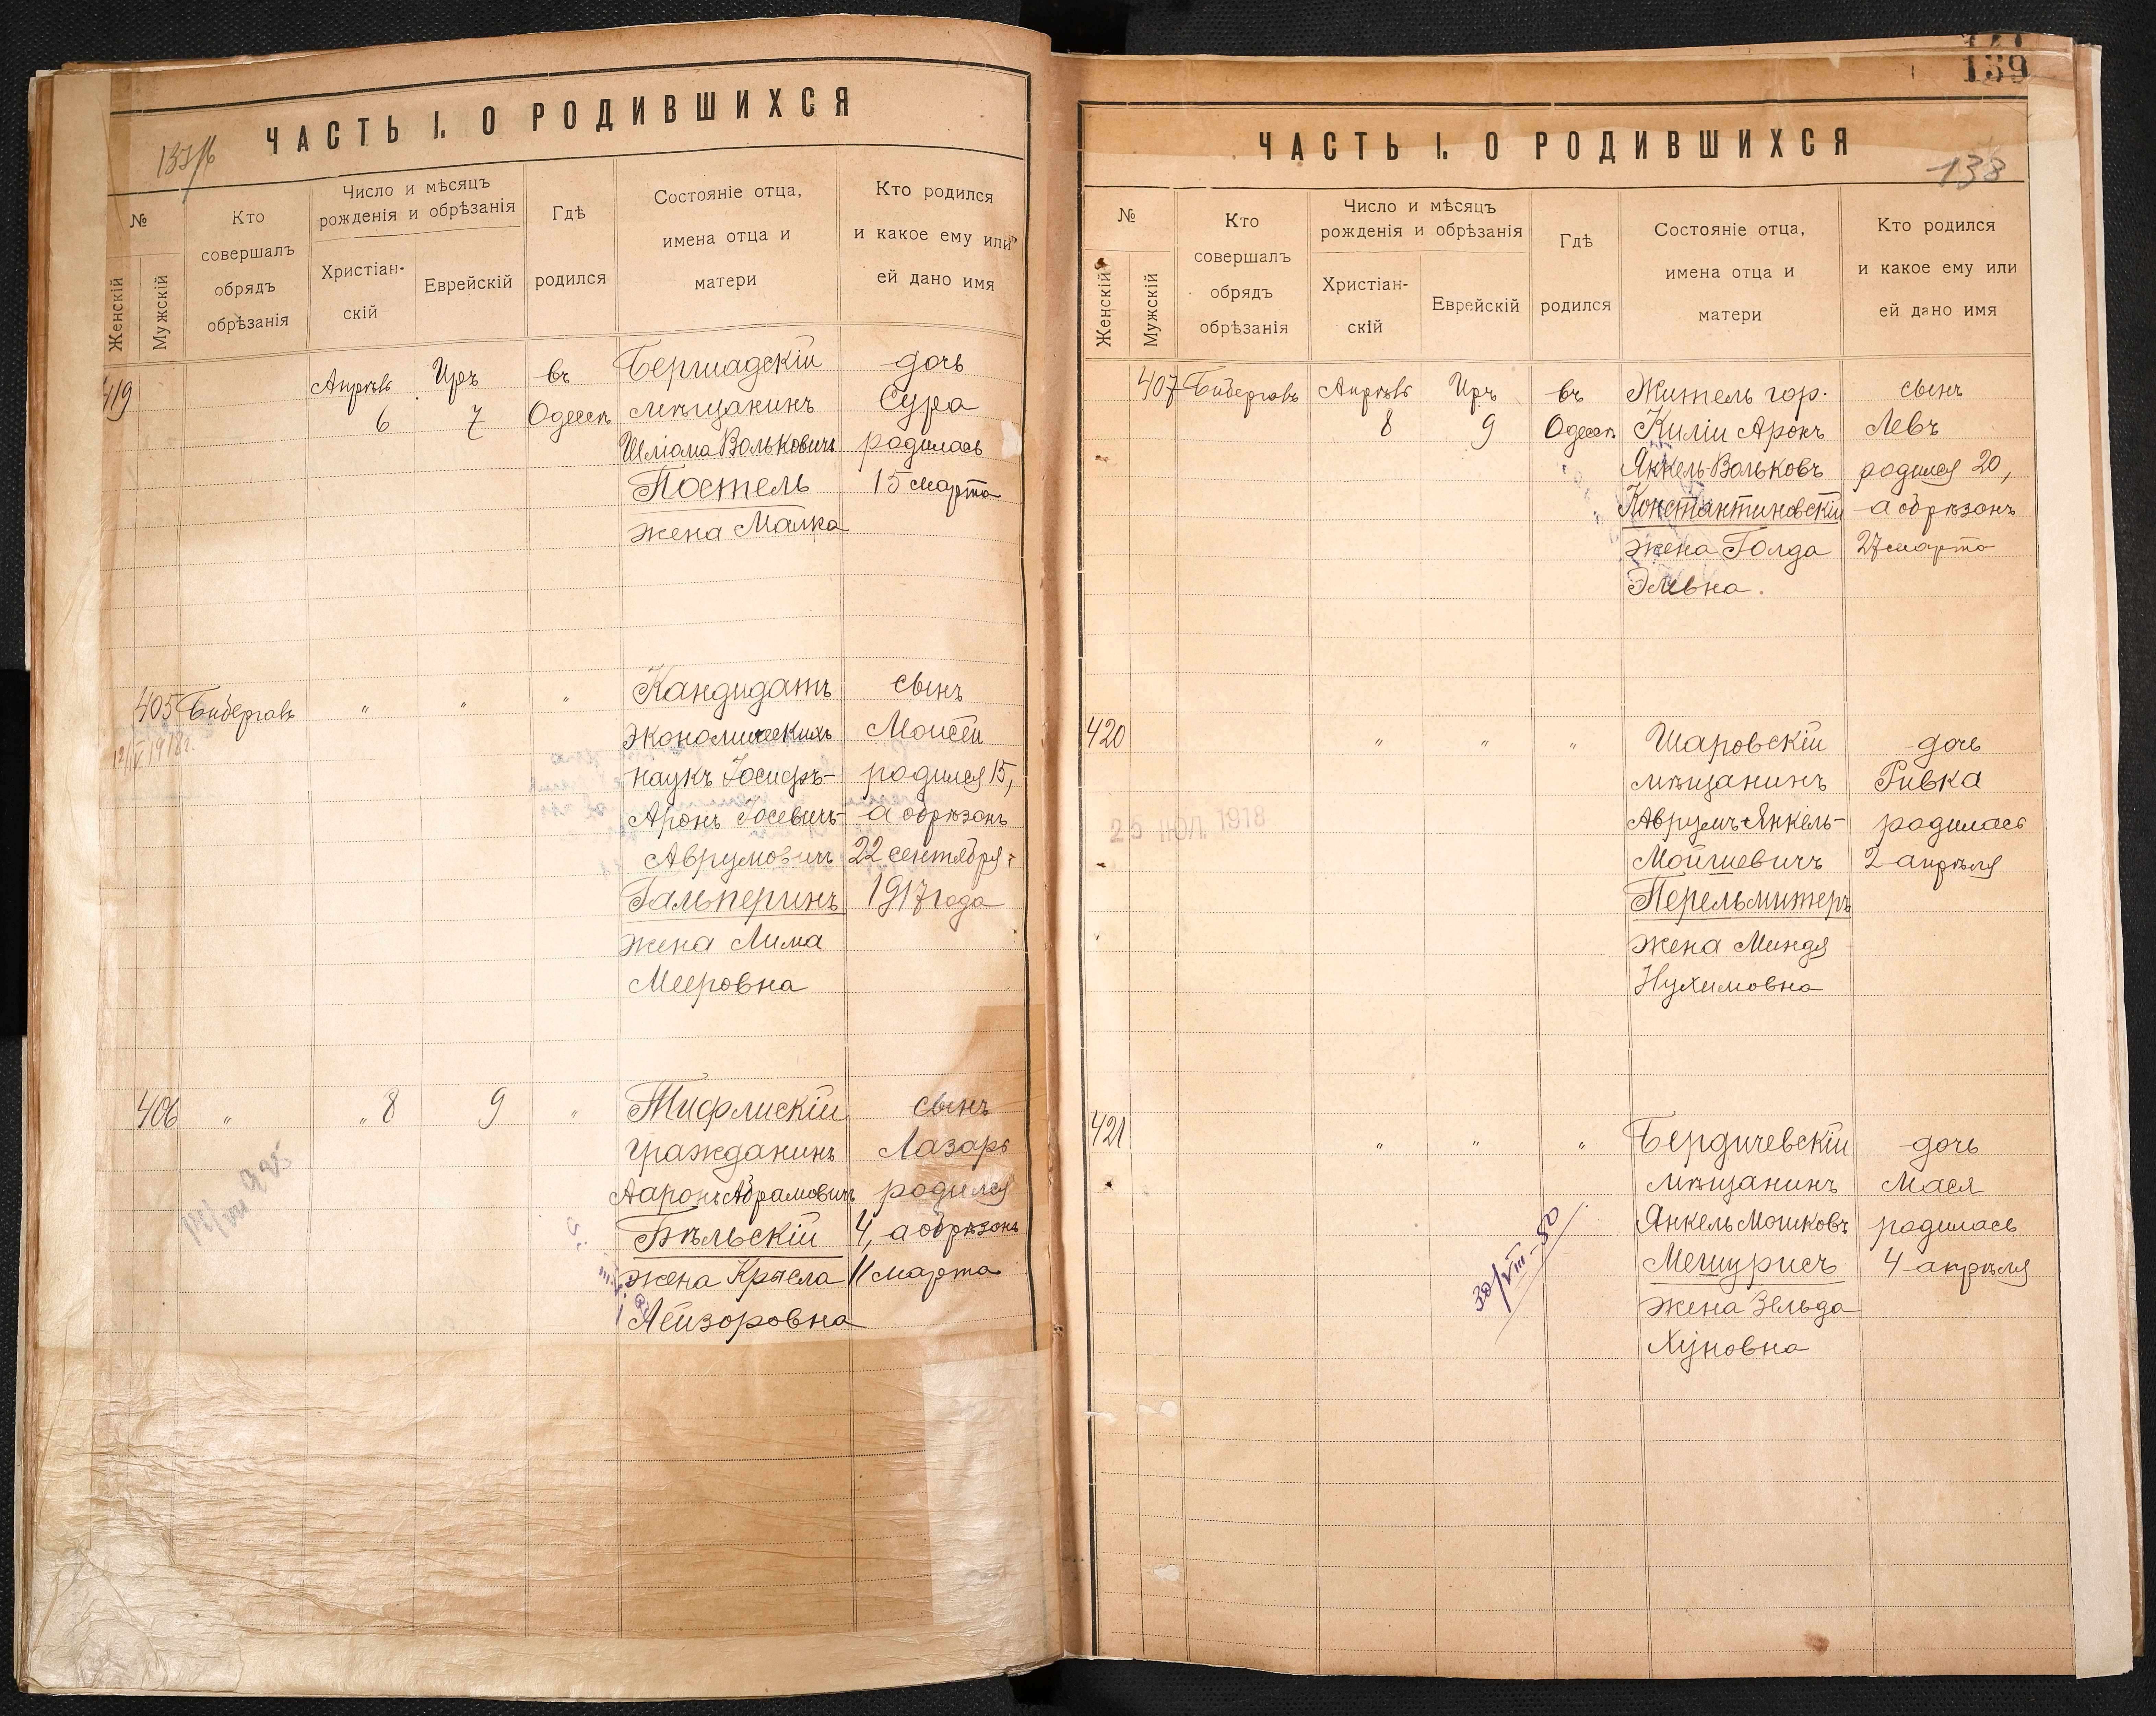 ЧАСТЬ I. О РОДИВШИХСЯ
№
Женскій
Мужскій
Кто
совершалъ
обрядъ
обрѣзанія
Число и мѣсяцъ
рожденія и обрѣзанія
Христіан-
скій
Еврейскій
Гдѣ
родился
Состояніе отца,
имена отца и
матери
Кто родился
и какое ему или
ей дано имя
419 Апрѣль Иръ въ Бершадскій дочь
6 7 Одессѣ мѣщанинъ Сура
Шліома Вольковичъ родилась
Постель 15 марта
жена Малка
405 Биберговъ " " " Кандидатъ сынъ
12/V 1918 г. экономическихъ Моисей
наукъ Іосифъ- родился 15,
Аронъ Іосевичъ- а обрѣзанъ
Аврумовичъ 22 сентября
Гальперинъ 1917 года
жена Лима
Мееровна
406 " " 8 9 " Тифлискій сынъ
гражданинъ Лазарь
Ааронъ Абрамовичъ родился
Бѣльскій 4, а обрѣзанъ
жена Крейла 11 марта
Лейзоровна
139
ЧАСТЬ I. О РОДИВШИХСЯ
138
№
Женскій
Мужскій
Кто
совершалъ
обрядъ
обрѣзанія
Число и мѣсяцъ
рожденія и обрѣзанія
Христіан-
скій
Еврейскій
Гдѣ
родился
Состояніе отца,
имена отца и
матери
Кто родился
и какое ему или
ей дано имя
407 Биберговъ Апрѣль Иръ въ Житель гор. сынъ
8 9 Одессѣ Киліи Аронъ Левъ
Янкель Вольковъ родился 20,
Константиновскій а обрѣзанъ
жена Голда 27 марта
Элевна.
420 " " " Шаровскій дочь
мѣщанинъ Ривка
25 ИЮЛ. 1918 Аврумъ-Янкель- родилась
Мойшевичъ 2 апрѣля
Перельмитеръ
жена Миндя
Нухимовна
421 " " " Бердичевскій дочь
мѣщанинъ Мася
Янкель Мошковъ родилась
30/VIII-50 Мешурисъ 4 апрѣля
жена Зельда
Хуновна